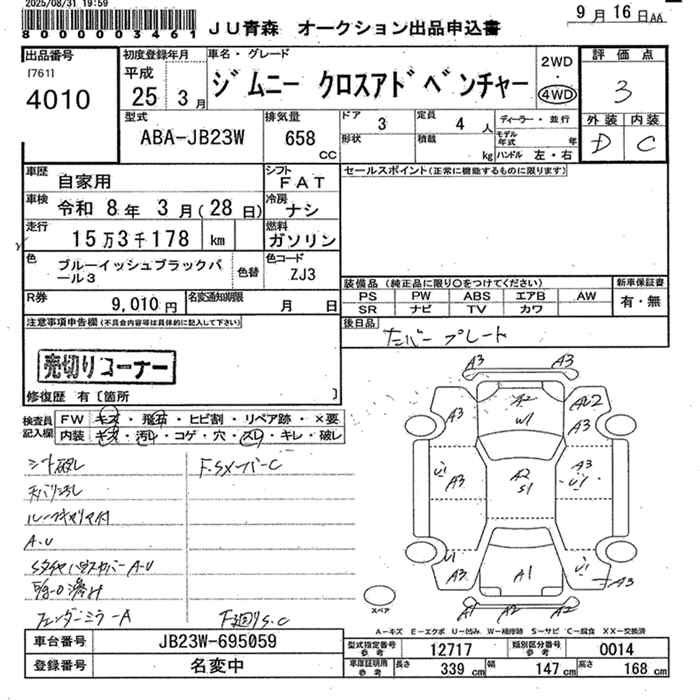 2025/08/31 19:59
8000003461
JU青森 オークション出品申込書
9月16日AA
出品番号
[761]
4010
初度登録年月
平成
25年3月
車名・グレード
ジムニー クロスアドベンチャー
2WD
・
4WD
評価点
3
外装 内装
D C
型式
ABA-JB23W
排気量
658
CC
ドア
3
形状
定員
4人
積載
kg
ディーラー・並行
モデル年式 年
ハンドル 左・右
車歴
自家用
シフト
FAT
セールスポイント(正常に機能するものに限ります)
車検
令和 8年 3月(28日)
冷房
ナシ
走行
15万3千178 km
燃料
ガソリン
色
ブルーイッシュブラックパール3
色替
色コード
ZJ3
装備品 (純正品に限り○をつけてください)
PS PW ABS エアB AW
SR ナビ TV カワ
新車保証書
有・無
R券
9,010円
名変通知期限
月 日
後日品
ナンバープレート
注意事項申告欄(不具合内容等は具体的に記入して下さい)
売切りコーナー
修復歴 有〔箇所 〕
検査員記入欄
FW キズ・飛石・ヒビ割・リペア跡・×要
内装 キズ・汚レ・コゲ・穴・スレ・キレ・破レ
シート破レ
F.Sメンバー C
天バリ汚レ
A.U
フェンダーミラーA
F廻りS.C
A3 A3
A3 A2 W1 A3
U1 A3 A2 S1 A3 U1
U1 A3 A1 U1 A3
A1 A2 A2
スペア
A-キズ E-エクボ U-凹み W-補修跡 S-サビ C-腐食 XX-交換済
車台番号
JB23W-695059
型式指定番号 参考
12717
類別区分番号 参考
0014
登録番号
名変中
車庫証明用 参考
長さ 339 cm 幅 147 cm 高さ 168 cm